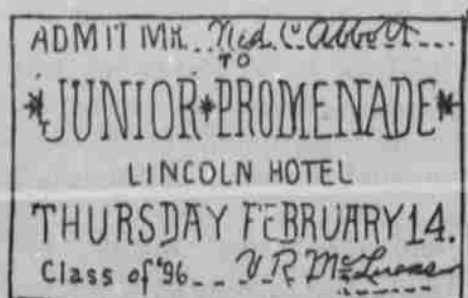 ADMIT MR. Ned. C. Abbott
TO
*JUNIOR*PROMENADE*
LINCOLN HOTEL
THURSDAY FEBRUARY 14.
Class of '96 -- V R McLucas